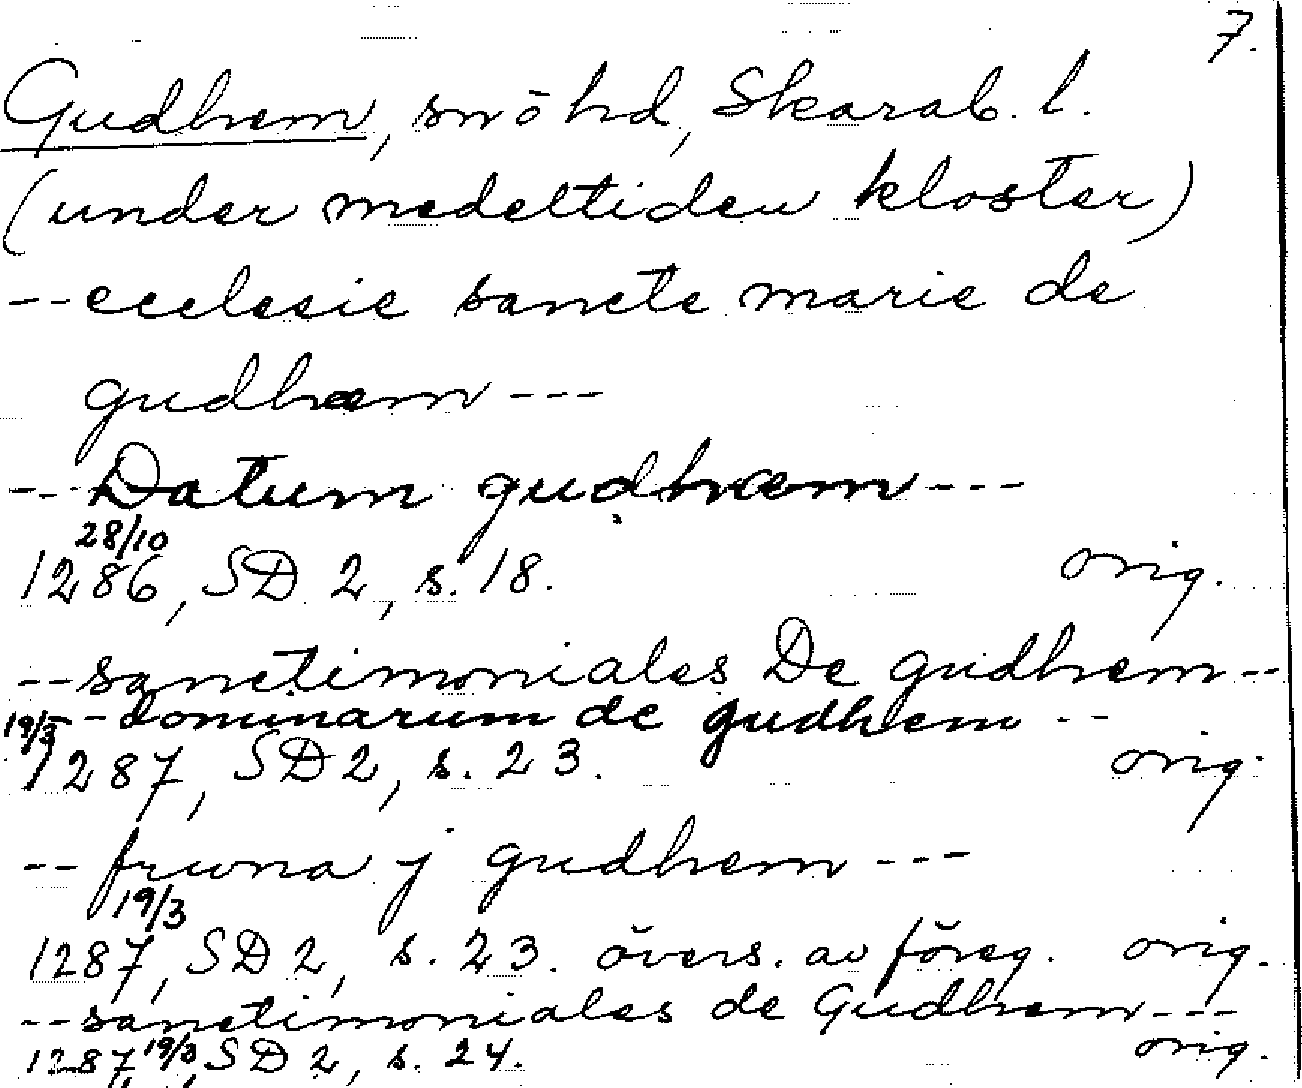 7.
Gudhem, sn o hd, Skarab. l.
(under medeltiden kloster)
-- ecclesie sancte marie de
gudhæm ---
-- Datum gudhæm ---
28/10
1286, SD 2, s. 18. orig.
-- sanctimoniales De gudhem --
-- dominarum de gudhem --
19/3
1287, SD 2, s. 23. orig.
-- fruona j gudhem ---
19/3
1287, SD 2, s. 23. övers. av föreg. orig.
-- sanctimoniales de Gudhem ---
1287 19/3, SD 2, s. 24. orig.